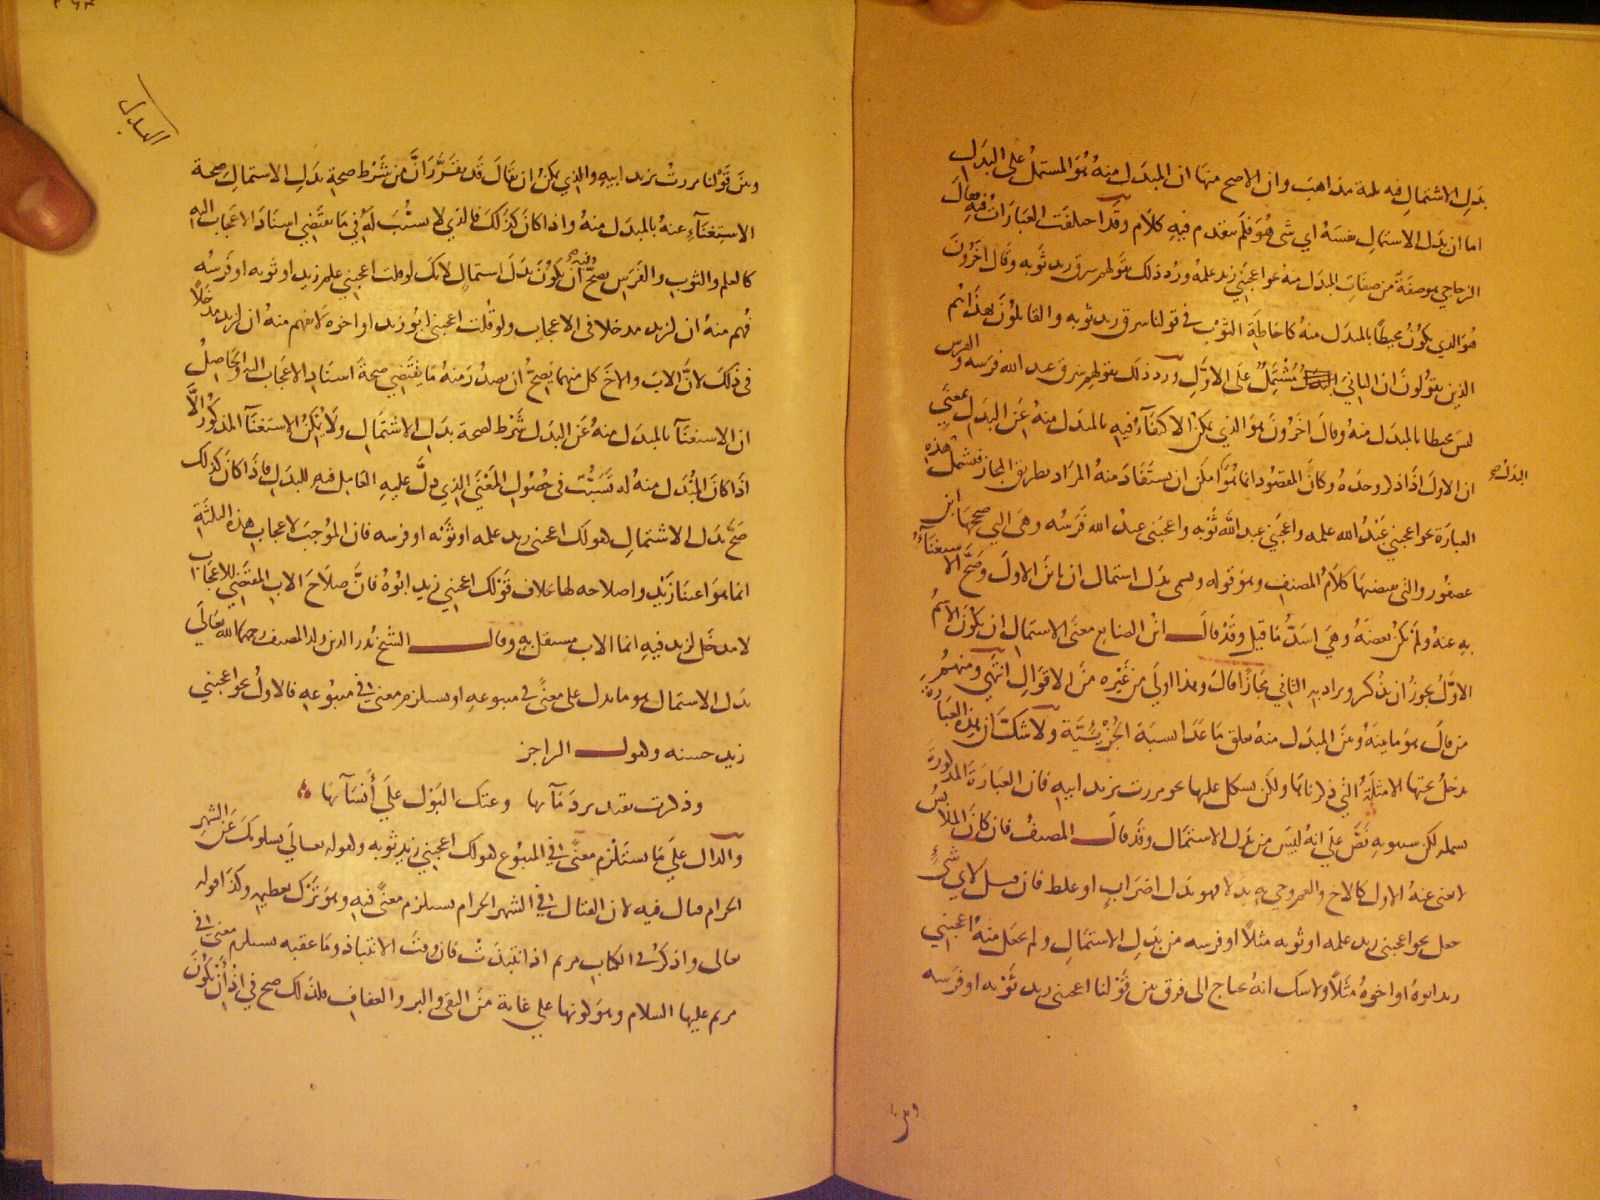 بدل الاشتمال فيه ثلثة مذاهب وان الاصح منها ان المبدل منه هو المشتمل على البدل
اما ان بدل الاشتمال نفسه اي شى هو فلم يتقدم فيه كلام وقد اختلفت العبارات فيه فقال
الزجاجي هو صفة من صفات المبدل منه نحو اعجبني زيد علمه ورد ذلك بقولهم سرق زيد ثوبه وقال اخرون
هو الذي يكون محيطا بالمبدل منه كاحاطة الثوب في قولنا سرق زيد ثوبه والقايلون بهذا هم
الذين يقولون ان الثاني مشتمل على الاول ورد ذلك بقولهم سرق عبد الله فرسه والفرس
ليس محيطا بالمبدل منه وقال اخرون هو الذي يمكن الاكتفاء فيه بالمبدل منه عن البدل بمعني
ان الاول اذا ذكر وحده وكان المقصود انما هو امكن ان يستفاد منه المراد بطريق المجاز فتشمل هذه
البدل صح
العبارة نحو اعجبني عبد الله علمه واعجبني عبد الله ثوبه واعجبني عبد الله فرسه وهي التي صححها ابن
عصفور والتى يقتضيها كلام المصنف وهو قوله ويسمى بدل اشتمال ان باين الاول وصح الاستغناء
به عنه ولم يكن بعضه وهي اسد ما قيل وقد قال ابن الصايع معنى الاشتمال ان يكون الاسم
الاول يجوز ان يذكر ويراد به الثاني مجازا قال وهذا اولى من غيره من الاقوال انتهي ومنهم
من قال هو ما بينه وبين المبدل منه تعلق ما عدا نسبة الجزئية ولا شك ان هذه العبارة
يدخل تحتها الامثلة التي ذكرناها ولكن يشكل عليها نحو مررت بزيد ابيه فان العبارة المذكورة
تشمله لكن سيبويه نص علي انه ليس من بدل الاشتمال وقد قال المصنف فان كان الملابس
لا يغني عنه الاول كالاخ والعم وجي به بدلا فهو بدل اضراب او غلط فان قيل لاي شيء
جعل نحو اعجبني زيد علمه او ثوبه مثلا او فرسه من بدل الاشتمال ولم يجعل منه اعجبني
زيد ابوه او اخوه مثلا ولا شك انه يحتاج الى فرق بين قولنا اعجبني زيد ثوبه او فرسه
وبين
البدل
وبين قولنا مررت بزيد ابيه والذي يمكن ان يقال قد تقرر ان من شرط صحة بدل الاشتمال صحة
الاستغناء عنه بالمبدل منه واذا كان كذلك فالذي لا تسبب له في ما يقتضي اسناد الاعجاب اليه
كالعلم والثوب والفرس يصح فيه ان يكون بدل اشتمال لانك لو قلت اعجبني علم زيد او ثوبه او فرسه
فهم منه ان لزيد مدخلا في الاعجاب ولو قلت اعجبني ابو زيد او اخوه لا يفهم منه ان لزيد مدخلا
في ذلك لان الاب والاخ كل منهما يصح ان يصدر منه ما يقتضي صحة اسناد الاعجاب اليه والحاصل
ان الاستغنا بالمبدل منه عن البدل شرط لصحة بدل الاشتمال ولا يمكن الاستغنا المذكور الا
اذا كان المبدل منه له تسبب في حصول المعنى الذي دل عليه العامل فيه للبدل فاذا كان كذلك
صح بدل الاشتمال كقولك اعجبني زيد علمه او ثوبه او فرسه فان الموجب لاعجاب هذه الثلثة
انما هو اعتنا زيد واصلاحه لها بخلاف قولك اعجبني زيد ابوه فان صلاح الاب المقتضي للاعجاب
لا مدخل لزيد فيه انما الاب مستقل به وقال الشيخ بدر الدين ولد المصنف رحمهما الله تعالى
بدل الاشتمال هو ما يدل على معنى في متبوعه او يستلزم معنى في متبوعه فالاول نحو اعجبني
زيد حسنه وكقول الراجز
وذكرت تقتد برد مآبها وعتك البول علي أنسآبها
والدال علي ما يستلزم معنى في المتبوع كقولك اعجبني زيد ثوبه وكقوله تعالي يسلونك عن الشهر
الحرام قتال فيه لان القتال في الشهر الحرام يستلزم معنى فيه وهو ترك تعظيمه وكذا قوله
تعالى واذكر في الكتاب مريم اذ انتبذت فان وقت الانتباذ وما عقبه يستلزم معنى في
مريم عليها السلام وهو كونها علي غاية من التقى والبر والعفاف فلذلك صح في اذ ان يكون